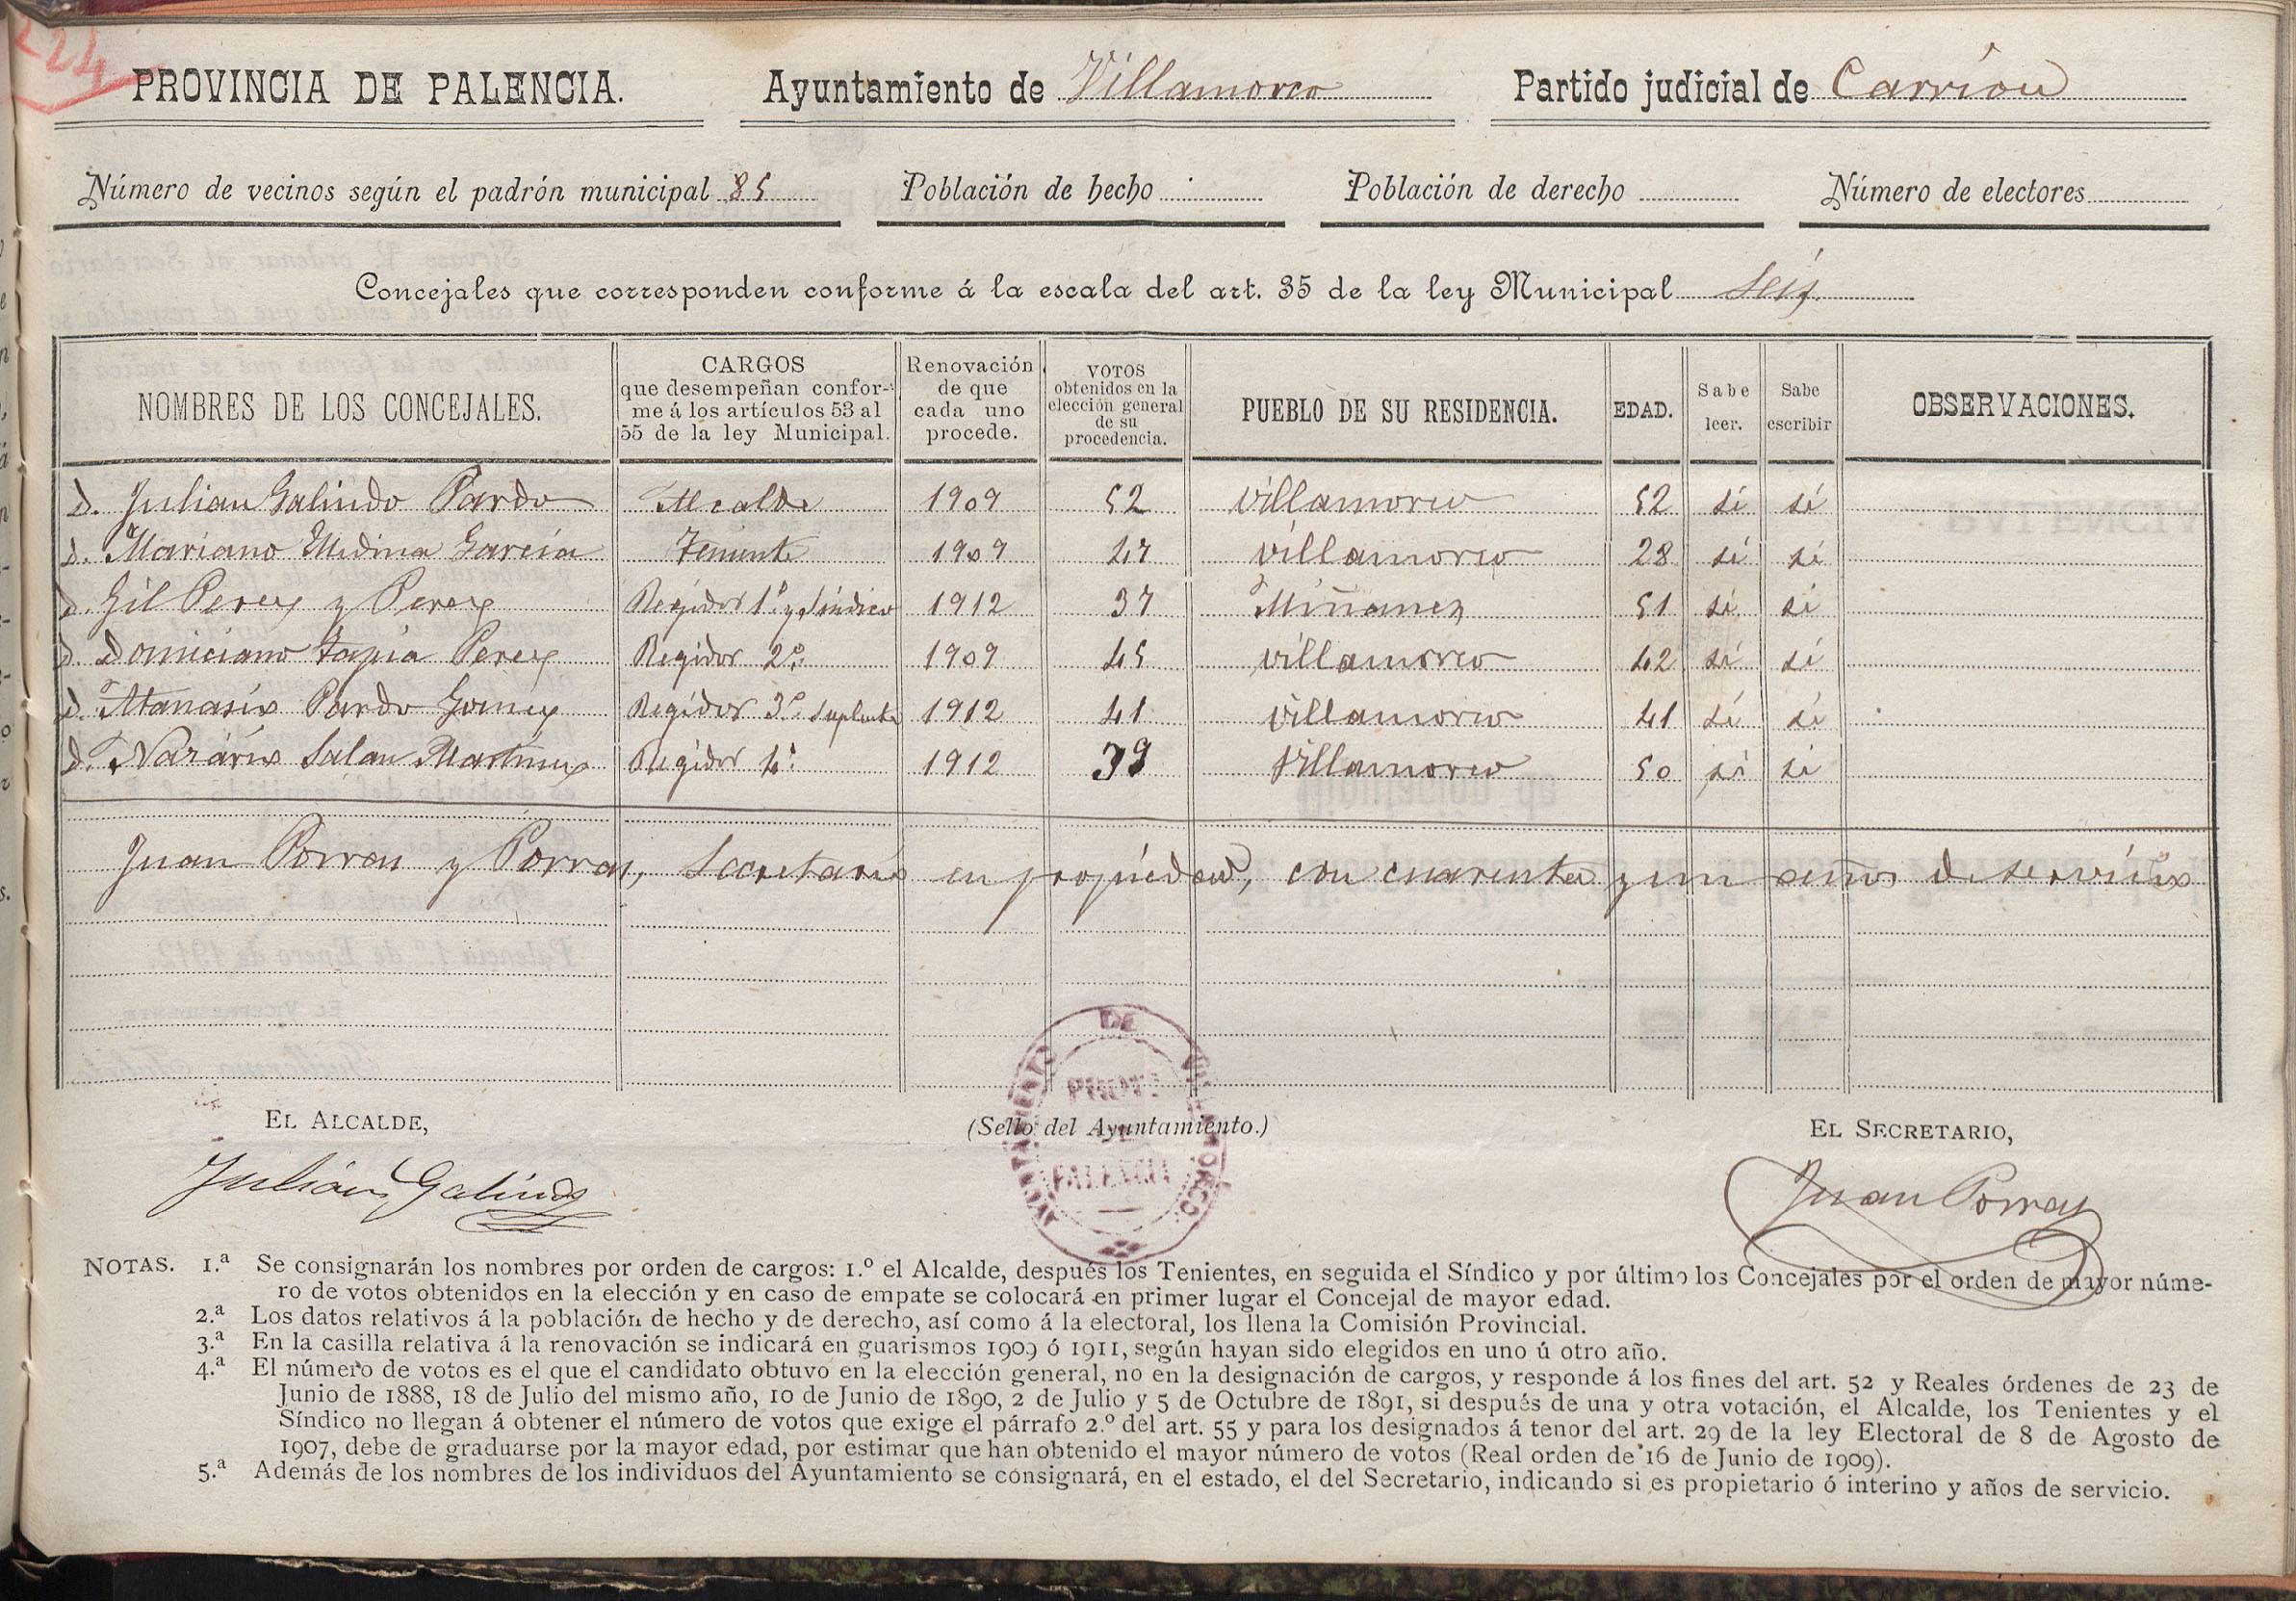 224
PROVINCIA DE PALENCIA. Ayuntamiento de Villamorco Partido judicial de Carrion
Número de vecinos según el padrón municipal 85 Población de hecho Población de derecho Número de electores
Concejales que corresponden conforme á la escala del art. 35 de la ley Municipal Seis
NOMBRES DE LOS CONCEJALES. CARGOS que desempeñan confor- me á los artículos 53 al 55 de la ley Municipal. Renovación de que cada uno procede. VOTOS obtenidos en la elección general de su procedencia. PUEBLO DE SU RESIDENCIA. EDAD. Sabe leer. Sabe escribir OBSERVACIONES.
D. Julian Galindo Pardo Alcalde 1909 52 Villamorco 52 sí sí
D. Mariano Medina Garcia Teniente 1909 47 Villamorco 28 sí sí
D. Gil Perez y Perez Regidor 1º y Síndico 1912 37 Miñanes 51 sí sí
D. Domiciano Tapia Perez Regidor 2º 1909 45 Villamorco 42 sí sí
D. Atanasio Pardo Gomez Regidor 3º suplente 1912 41 Villamorco 41 sí sí
D. Nazário Salan Martinez Regidor 4º 1912 39 Villamorco 50 sí sí
Juan Porras y Porras, Secretario en propiedad, con cuarenta y un años de servicios
AYUNTAMIENTO DE VILLAMORCO
PROVª
PALENCIA
EL ALCALDE, (Sello del Ayuntamiento.) EL SECRETARIO,
Julián Galindo Juan Porras
NOTAS. 1.ª Se consignarán los nombres por orden de cargos: 1.º el Alcalde, después los Tenientes, en seguida el Síndico y por último los Concejales por el orden de mayor núme-
ro de votos obtenidos en la elección y en caso de empate se colocará en primer lugar el Concejal de mayor edad.
2.ª Los datos relativos á la población de hecho y de derecho, así como á la electoral, los llena la Comisión Provincial.
3.ª En la casilla relativa á la renovación se indicará en guarismos 1909 ó 1911, según hayan sido elegidos en uno ú otro año.
4.ª El número de votos es el que el candidato obtuvo en la elección general, no en la designación de cargos, y responde á los fines del art. 52 y Reales órdenes de 23 de
Junio de 1888, 18 de Julio del mismo año, 10 de Junio de 1890, 2 de Julio y 5 de Octubre de 1891, si después de una y otra votación, el Alcalde, los Tenientes y el
Síndico no llegan á obtener el número de votos que exige el párrafo 2.º del art. 55 y para los designados á tenor del art. 29 de la ley Electoral de 8 de Agosto de
1907, debe de graduarse por la mayor edad, por estimar que han obtenido el mayor número de votos (Real orden de 16 de Junio de 1909).
5.ª Además de los nombres de los individuos del Ayuntamiento se consignará, en el estado, el del Secretario, indicando si es propietario ó interino y años de servicio.